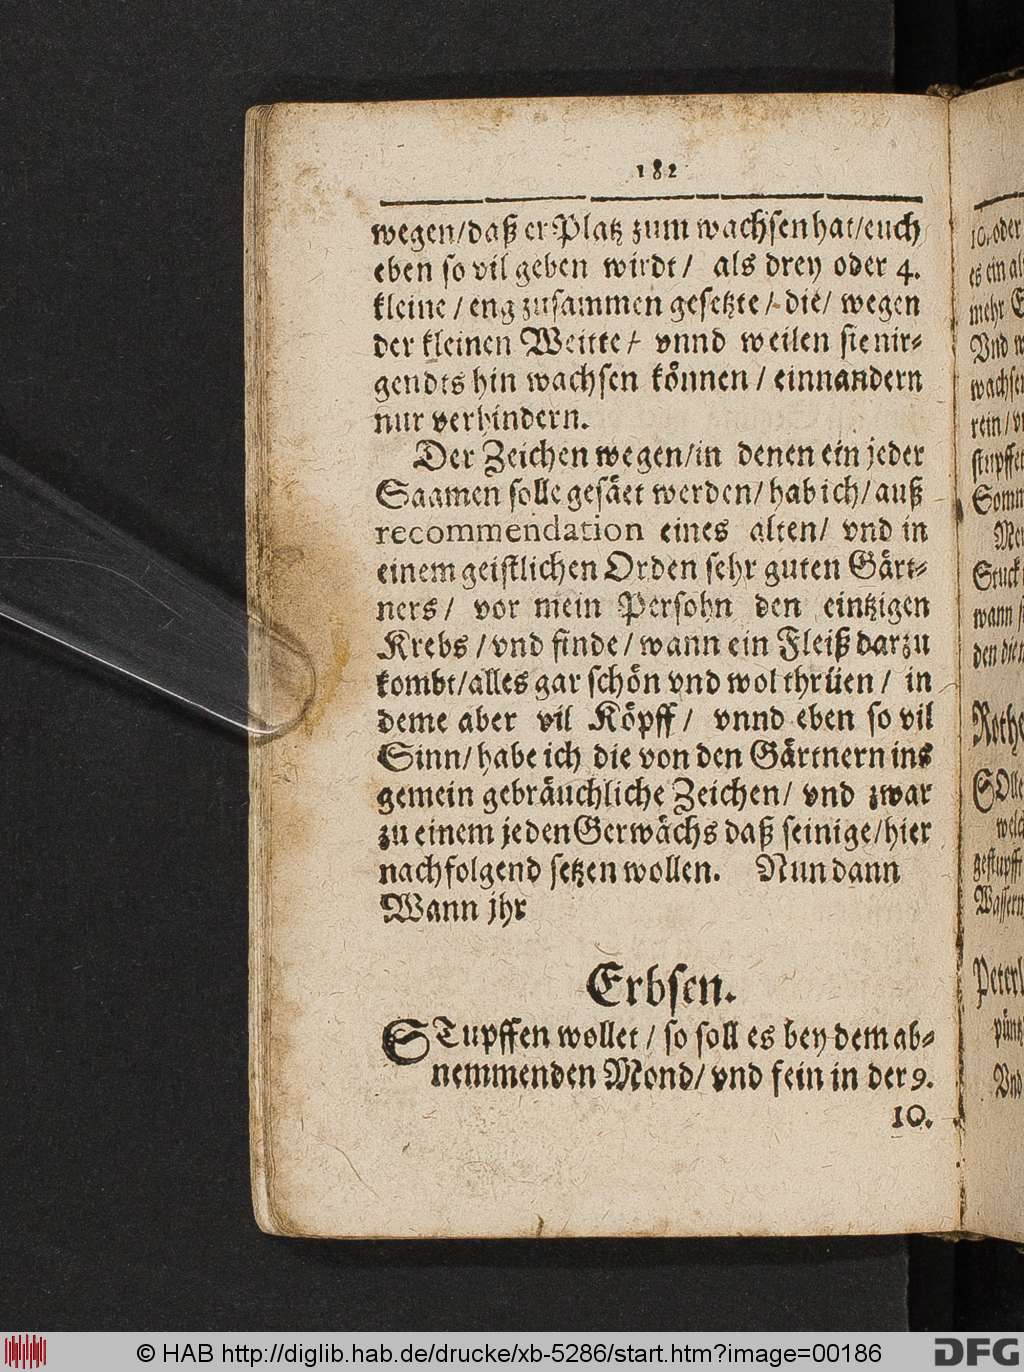 182
wegen/daß er Platz zum wachsen hat/euch
eben so vil geben wirdt/ als drey oder 4.
kleine / eng zusammen gesetzte / die/ wegen
der kleinen Weitte / vnnd weilen sie nir-
gendts hin wachsen können / einnandern
nur verhindern.
Der Zeichen wegen/in denen ein jeder
Saamen solle gesäet werden/ hab ich/ auß
recommendation eines alten/ vnd in
einem geistlichen Orden sehr guten Gärt-
ners / vor mein Persohn den eintzigen
Krebs / vnd finde / wann ein Fleiß darzu
kombt/alles gar schön vnd wol thrüen / in
deme aber vil Köpff / vnnd eben so vil
Sinn/ habe ich die von den Gärtnern ins
gemein gebräuchliche Zeichen/ vnd zwar
zu einem jeden Gerwächs daß seinige/hier
nachfolgend setzen wollen. Nun dann
Wann jhr
Erbsen.
STupffen wollet / so soll es bey dem ab-
nemmenden Mond/ vnd fein in der 9.
10.
10. oder
es ein
mehr
Vnd
wachsen
rein / 
stupffet
Stuck
wann
den
Rothe
SOlle
welc
gestupfft
Wassern
Vnd
© HAB http://diglib.hab.de/drucke/xb-5286/start.htm?image=00186
DFG